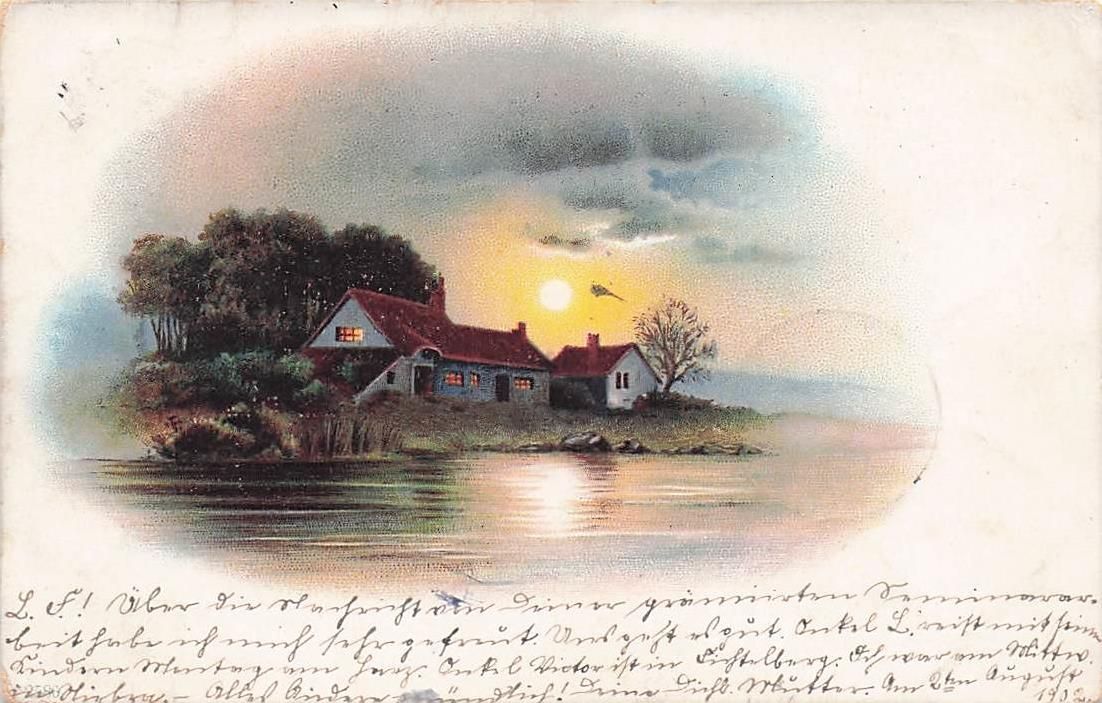 L. F.! Über die Nachricht von Deiner prämiirten Seminarar-
beit habe ich mich sehr gefreut. Uns geht es gut. Onkel L. reist mit seinen
Kindern Montag am Harz. Onkel Victor ist in Fichtelberg. Ich war am Mittw.
in Nebra. – Alles Andere mündlich! Deine Dichl. Mutter. Am 2ten August
1902.